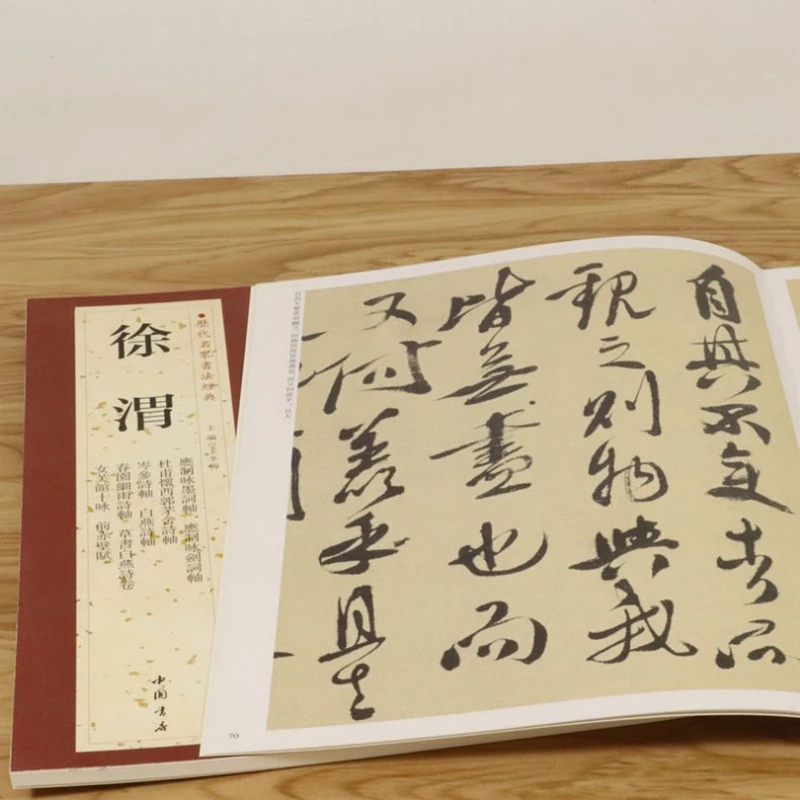 歷代名家書法經典
徐渭
主編
應制咏墨詞軸 應制咏劍詞軸
杜甫懷西郭茅舍詩軸
岑參詩軸 白燕詩軸
春園細雨詩軸 草書白燕詩卷
女芙館十咏 前赤壁賦
中國書店
自其不變者而
觀之則物與我
皆無盡也而
又何羨乎且夫
70